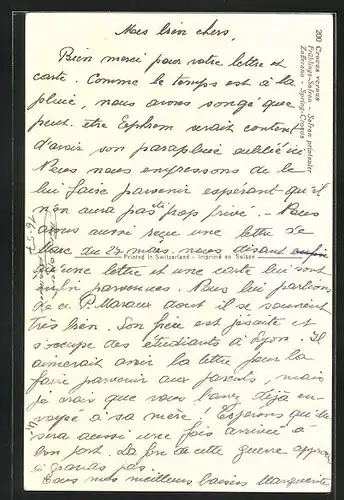 Mes bien chers,
Bien merci pour votre lettre et
carte. Comme le temps est à la
pluie, nous avons songé que
peut-être Ephrem serait content
d'avoir son parapluie oublié ici.
Nous nous empressons de le
lui faire parvenir espérant qu'il
n'en aura pas été trop privé. - Nous
avons aussi reçu une lettre de
Marc du 27 mars nous disant enfin
qu'une lettre et une carte lui sont
enfin parvenues. Nous lui parlions
de ce P. Maraux dont il se souvient
très bien. Son frère est jésuite et
s'occupe des étudiants à Lyon. Il
aimerait avoir la lettre pour la
faire parvenir aux parents, mais
je crais que vous l'avez déjà en-
voyée à sa mère! Espérons qu'elle
sera aussi une fois arrivée à
bon port. La fin de cette guerre approche
à grands pas.
Tous mes meilleurs baisers Marguerite
290 Crocus vernus
Frühlings-Safran - Safran printanier
Zafferano - Spring-Crocus
Printed in Switzerland - Imprimé en Suisse